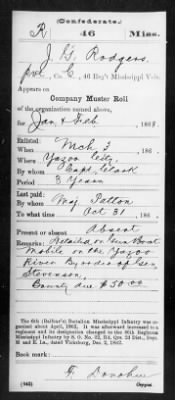 (Confederate.)
R 46 Miss.
J. G. Rodgers
Pvt., Co. C, 46 Reg't Mississippi Vols.
Appears on
Company Muster Roll
of the organization named above,
for Jan & Feb, 1863.
Enlisted:
When Mch 3, 186 .
Where Yazoo City,
By whom Capt. Clark
Period 3 Years
Last paid:
By whom Maj Patton
To what time Oct 31, 186 .
Present or absent Absent
Remarks: Detailed on Gun Boat
Mobile on the Yazoo
River By order of Gen
Stevenson.
Bounty due $50.00
The 6th (Balfour's) Battalion Mississippi Infantry was
organized about April, 1862. It was afterward increased to
a regiment and its designation changed to the 46th Regiment
Mississippi Infantry by S. O. No.
Vicksburg, Dec. 2, 1862.
Book mark:
F. Donohue
(642) Copyist.